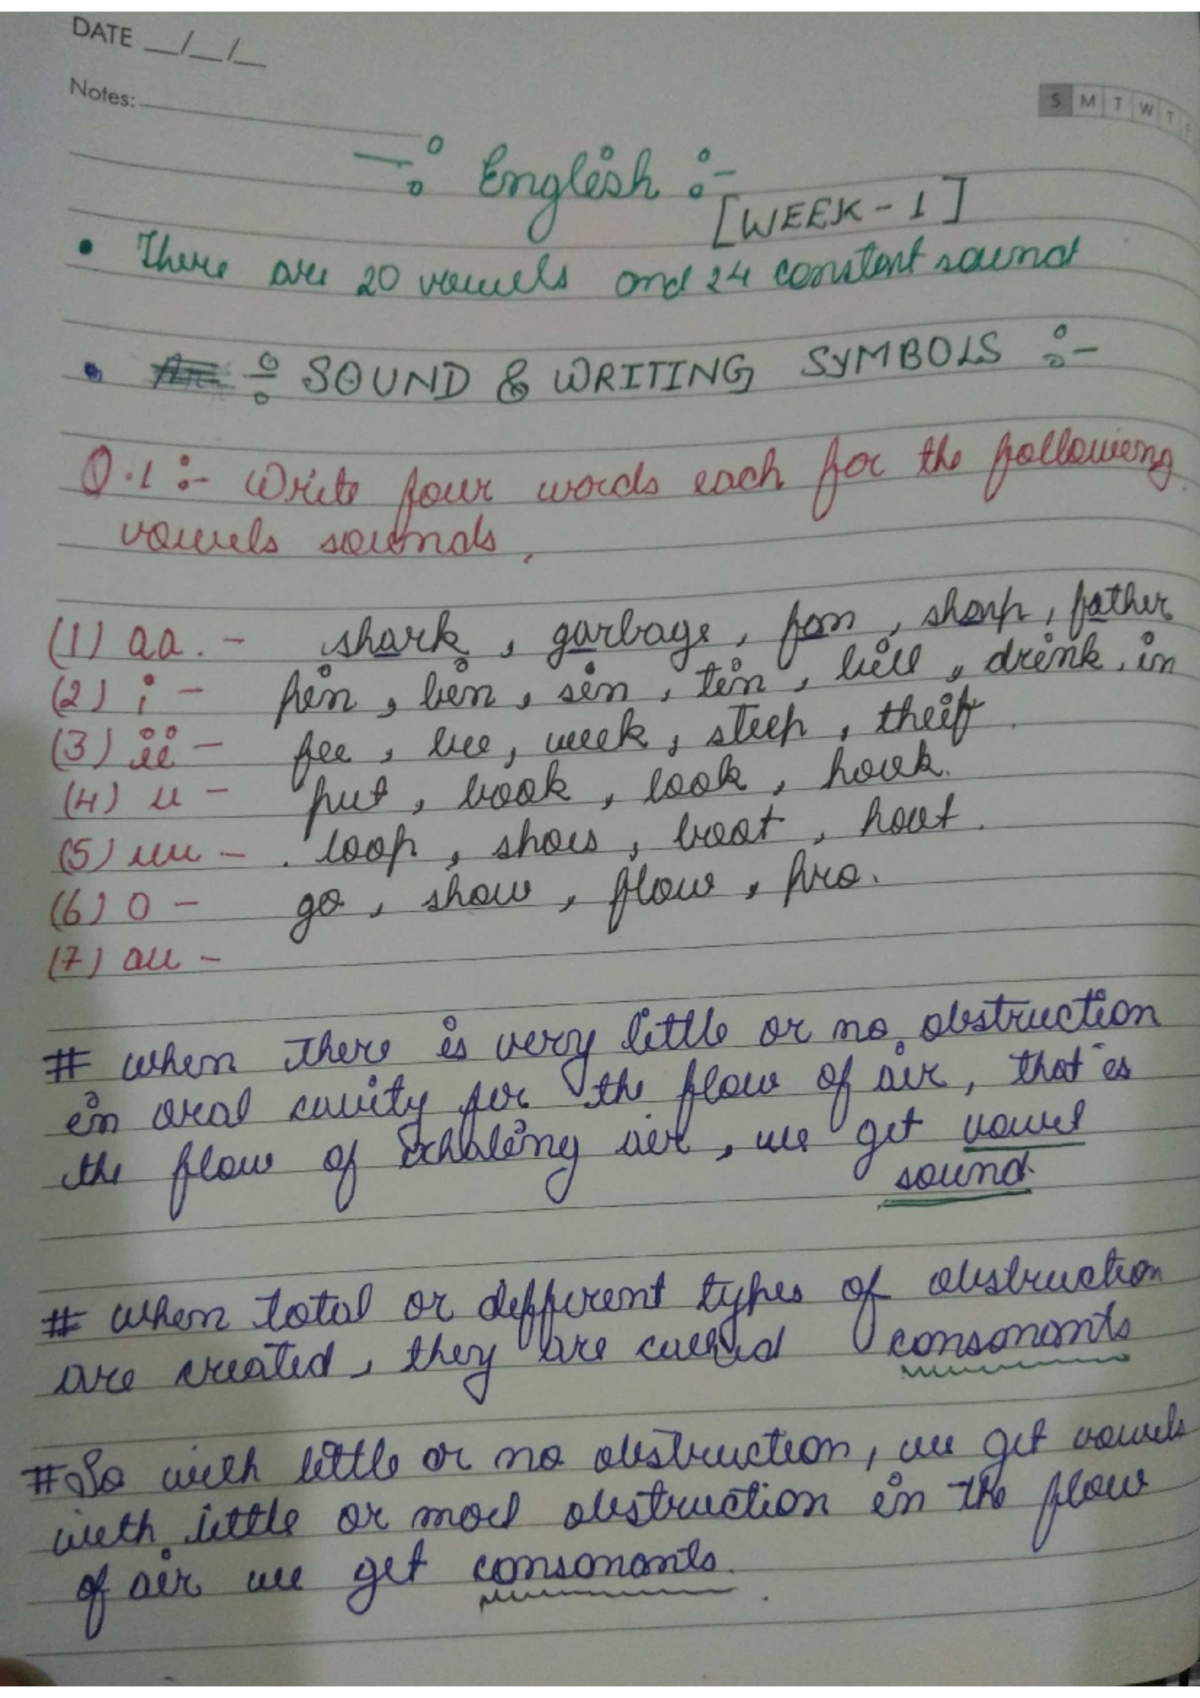 DATE __/__/__
Notes:
S M T W T
-: English :-
[WEEK-1]
• There are 20 vowels and 24 constent sound
• : SOUND & WRITING SYMBOLS :-
Q.1 :- Write four words each for the following
vowels sounds.
(1) aa. - shark, garbage, fan, sharp, father
(2) i - pin, bin, sin, tin, bill, drink, in
(3) ii - fee, bee, week, steep, theif.
(4) u - put, book, look, hook.
(5) uu - . loop, shoes, boot, hoot.
(6) o - go, show, flow, pro.
(7) au -
# when there is very little or no obstruction
in oral cavity for the flow of air, that is
the flow of exhaling air, we get vowel
sound.
# when total or different types of obstruction
are created, they are called consonants
# So with little or no obstruction, we get vowels
with little or more obstruction in the flow
of air we get consonants.